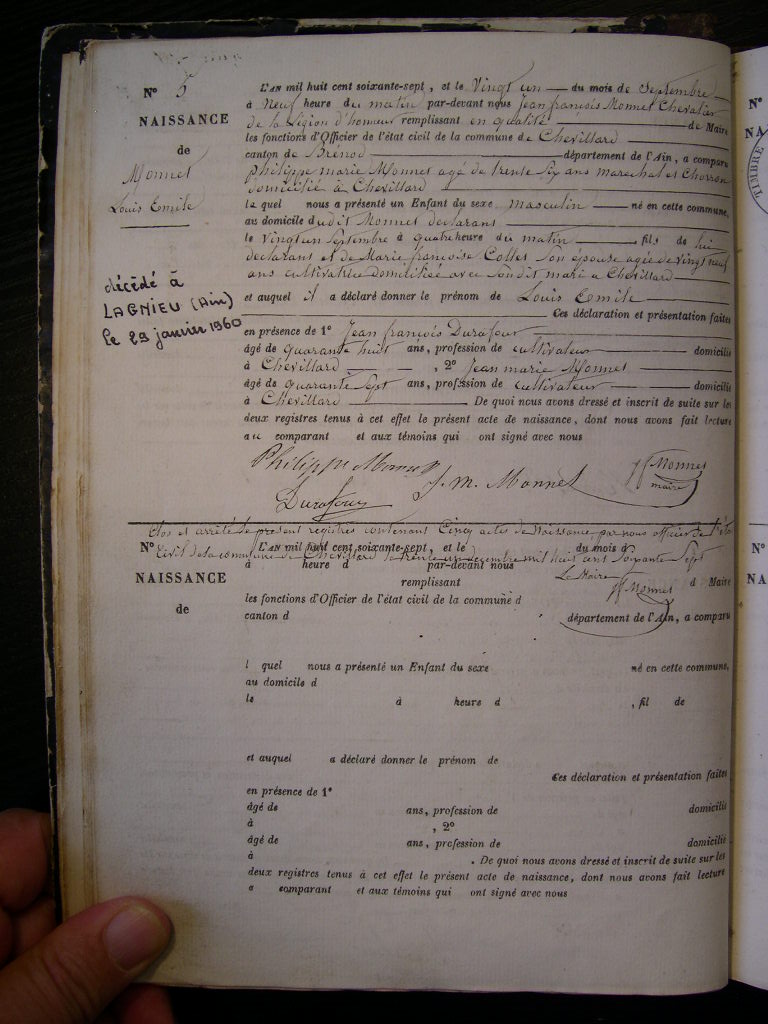 N° 5
NAISSANCE
de
Monnet
Louis Emile
décédé à
LAGNIEU (Ain)
le 29 janvier 1960
L'AN mil huit cent soixante-sept, et le Vingt un du mois de Septembre
à Neuf heure du matin par-devant nous Jean françois Monnet Chevalier
de la Légion d'honneur remplissant en qualité de Maire
les fonctions d'Officier de l'état civil de la commune de Chevillard
canton de Brénod département de l'Ain, a comparu
philippe marie Monnet agé de trente Six ans marechal et Charron
domicilié à Chevillard
lequel nous a présenté un Enfant du sexe masculin né en cette commune,
au domicile dudit Monnet declarans
le Vingtun Septembre à quatre heure du matin fils de lui
declarans et de Marie françoise Collet Son épouse agée de vingt neuf
ans cultivatrice domiciliée avec Sondit mari a Chevillard
et auquel il a déclaré donner le prénom de Louis Emile
Ces déclaration et présentation faites
en présence de 1° Jean françois Durafour
âgé de quarante huit ans, profession de cultivateur domicilié
à Chevillard , 2° Jean marie Monnet
âgé de quarante Sept ans, profession de cultivateur domicilié
à Chevillard De quoi nous avons dressé et inscrit de suite sur les
deux registres tenus à cet effet le présent acte de naissance, dont nous avons fait lecture
au comparant et aux témoins qui ont signé avec nous
Philippe Monnet J. M. Monnet Monnet
maire
Durafour
Clos et arrêté le present registres contenant Cinq actes de Naissance par nous officier de l'éta
Civil de la commune de Chevillard le trente un decembre mil huit cent Soixante Sept
Le Maire
Monnet
N°
NAISSANCE
de
L'AN mil huit cent soixante-sept, et le du mois d
à heure d par-devant nous
remplissant d Maire
les fonctions d'Officier de l'état civil de la commune d
canton d département de l'Ain, a comparu
l quel nous a présenté un Enfant du sexe né en cette commune,
au domicile d
le à heure d , fil de
et auquel a déclaré donner le prénom de
Ces déclaration et présentation faites
en présence de 1°
âgé de ans, profession de domicilié
à , 2°
âgé de ans, profession de domicilié
à . De quoi nous avons dressé et inscrit de suite sur les
deux registres tenus à cet effet le présent acte de naissance, dont nous avons fait lecture
a comparant et aux témoins qui ont signé avec nous
N°
NA
TIMBRE
N°
NA